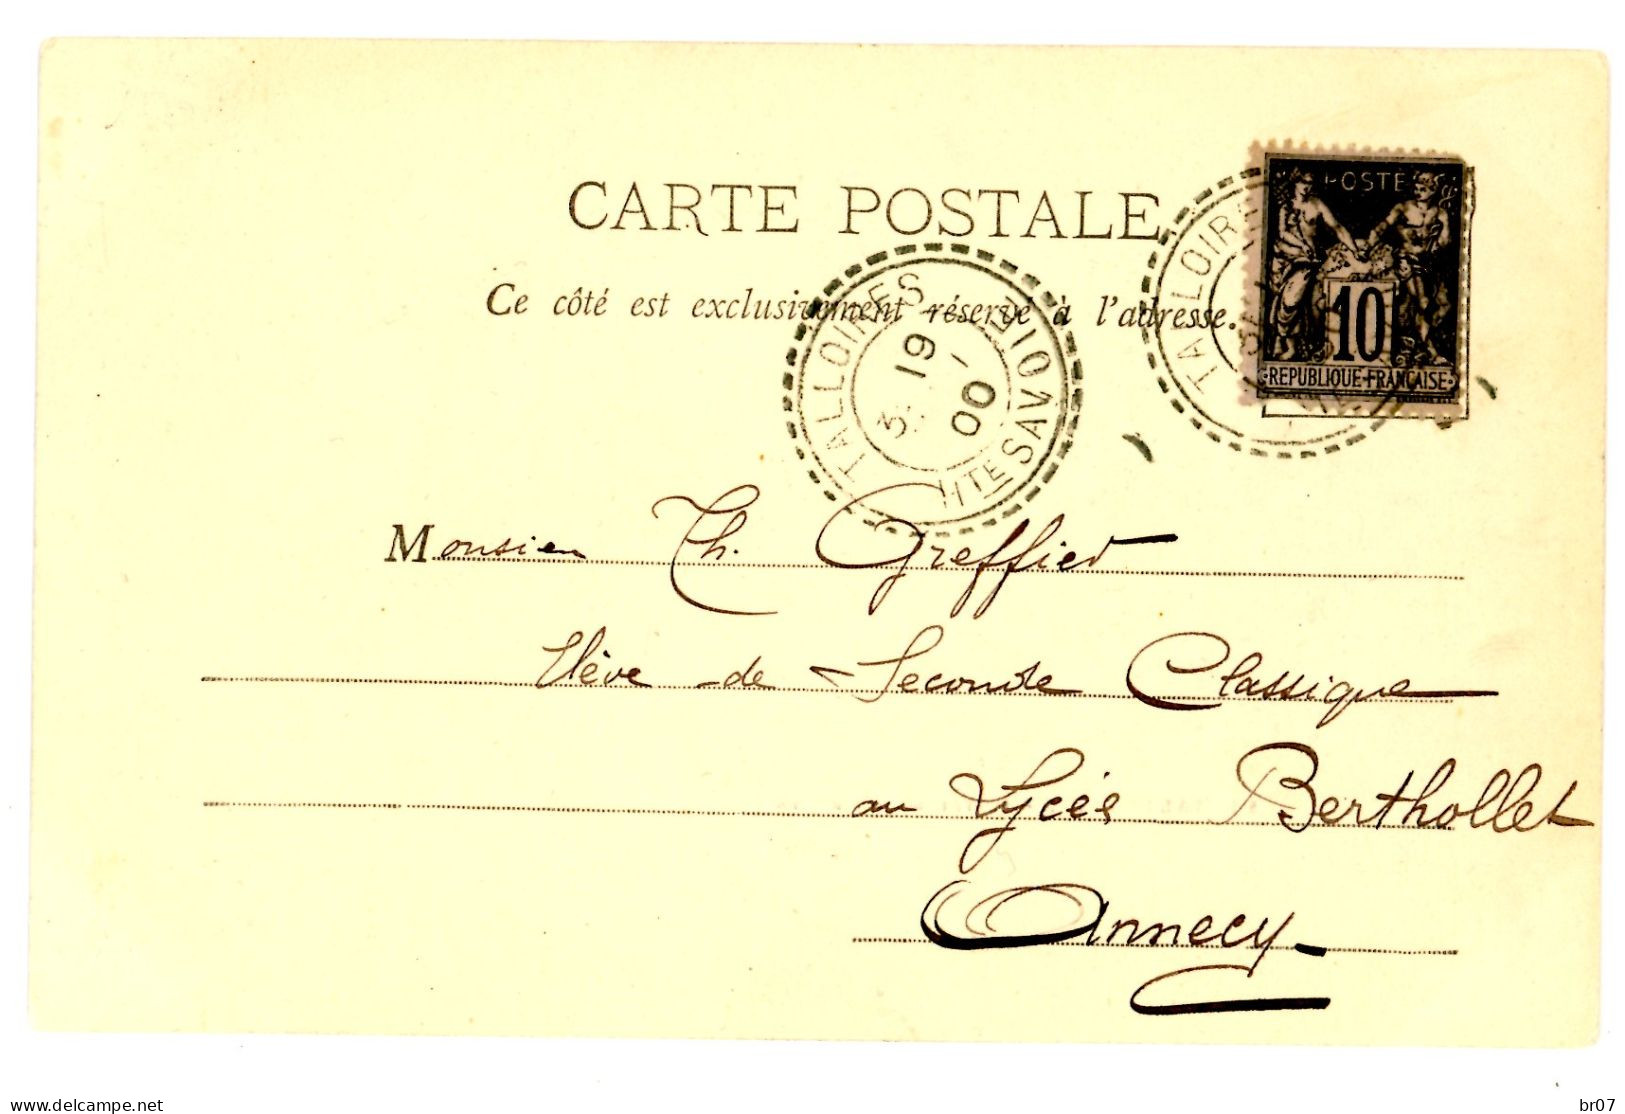 CARTE POSTALE
Ce côté est exclusivement réservé à l'adresse.
POSTE
10
REPUBLIQUE FRANÇAISE
TALLOIRES
19
00
HTE SAVOIE
TALLOIRES
Monsieur Th. Greffier
Elève de Seconde Classique
au Lycée Berthollet
Annecy
delcampe.net
br07